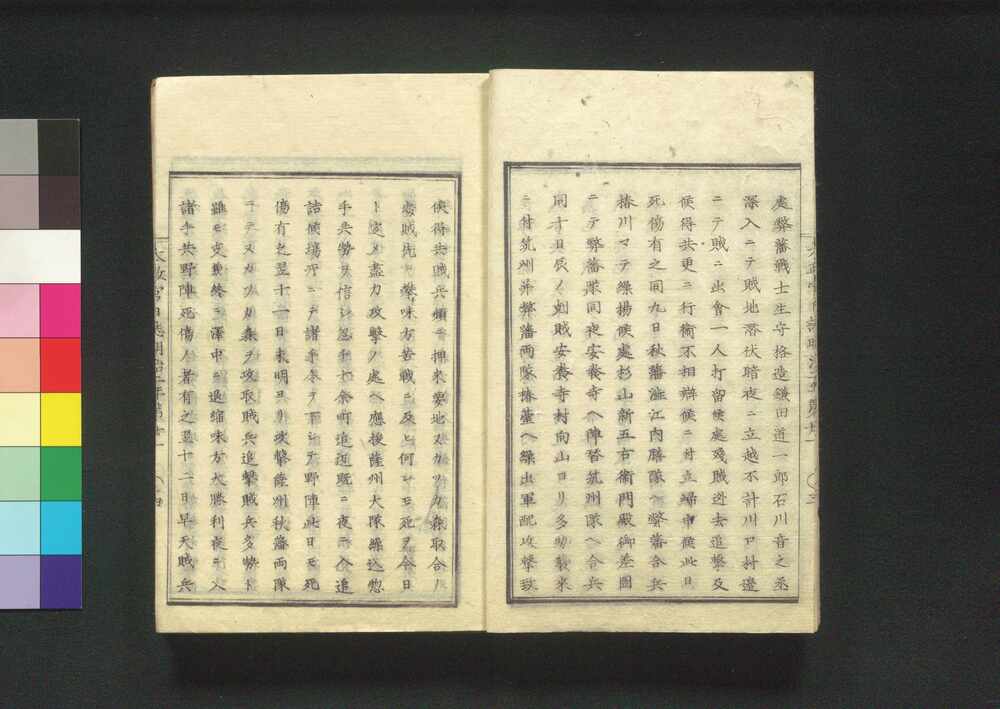 處弊藩戰士生守格造鎌田道一郎石川音之丞
深入ニテ賊地潛伏暗夜ニ立越不計川口村邊
ニテ賊ニ出會一人打留候處殘賊迯去追擊及
候得共更ニ行衞不相辨候ニ付立歸申候此日
死傷有之同九日秋藩澁江内膳隊ヘ弊藩合兵
椿川マテ繰揚候處杉山新五右衞門殿御差圖
ニテ弊藩隊同夜安養寺ヘ陣替筑州隊ヘ合兵
同十日辰ノ刻賊安養寺村向山ヨリ多勢襲來
ニ付筑州并弊藩兩隊椿臺ヘ繰出軍配攻擊致
候得共賊兵頻ニ押來要地ヌカツカ森取合ハ
賊先ニ攀味方苦戰ニ及ヒ何レモ死ヲ今日
ト定メ盡力攻擊ノ處ヘ應援薩州大隊繰込惣
手共勢ヲ倍シ忽チ十余町追返既ニ夜ニ入追
詰候場所ニテ諸手冬ヲ下シテ野陣此日モ死
傷有之翌十一日未明ヨリ攻擊薩州秋藩兩隊
ニテヌカツカ森ヲ攻取賊兵追擊賊兵多勢ト
雖モ支兼終ニ澤中ニ退縮味方大勝利夜ニ入
諸手共野陣死傷人者有之翌十二日早天賊兵